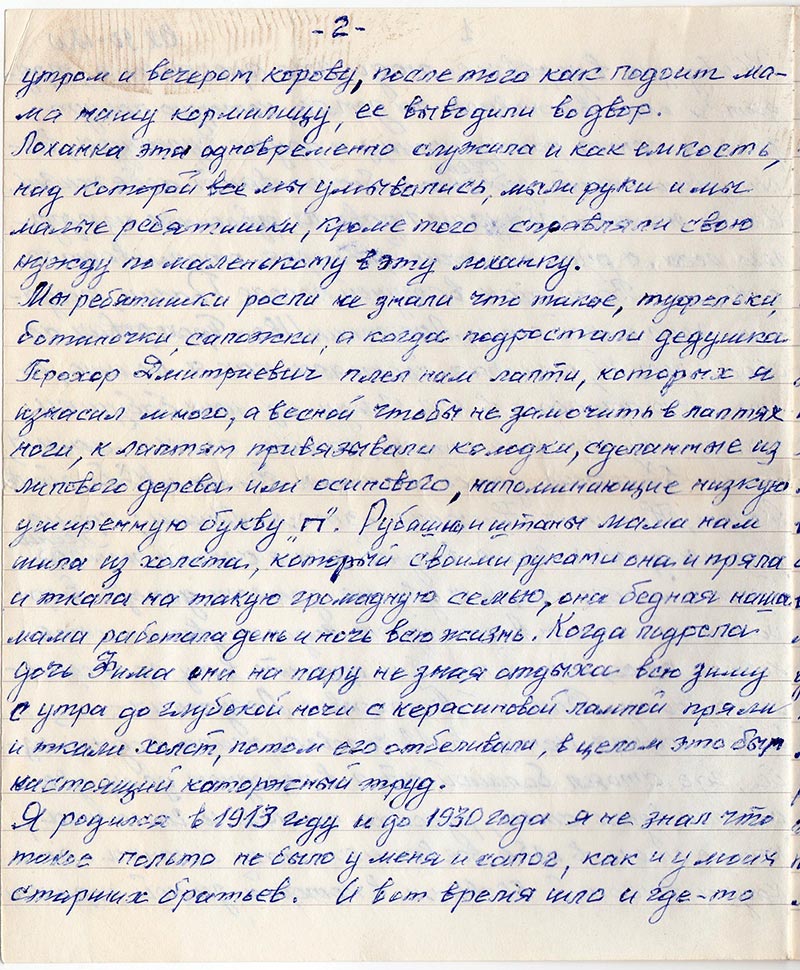 -2-
утром и вечером корову, после того как подоит ма-
ма нашу кормилицу, ее выводили во двор.
Лоханка эта одновременно служила и как емкость,
над которой все мы умывались, мыли руки и мы
малые ребятишки, кроме того справляли свою
нужду по маленькому в эту лоханку.
Мы ребятишки росли не знали что такое, туфельки,
ботиночки, сапожки, а когда подростали дедушка
Прохор Дмитриевич плел нам лапти, которых я
износил много, а весной чтобы не замочить в лаптях
ноги, к лаптям привязывали колодки, сделанные из
липового дерева или осинового, напоминающие низкую
уширенную букву "П". Рубашки и штаны мама нам
шила из холста, который своими руками она и пряла
и ткала на такую громадную семью, она бедная наша
мама работала день и ночь всю жизнь. Когда подросла
дочь Фима они на пару не зная отдыха всю зиму
с утра до глубокой ночи с керасиновой лампой пряли
и ткали холст, потом его отбеливали, в целом это был
настоящий каторжный труд.
Я родился в 1913 году и до 1930 года я не знал что
такое польто не было у меня и сапог, как и у моих
старших братьев. И вот время шло и где-то